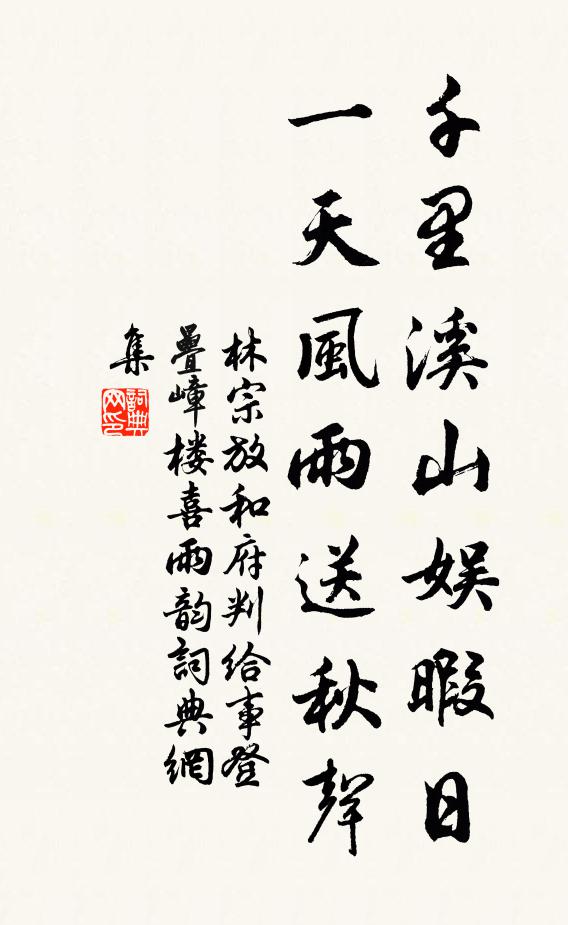 千里溪山娱暇日
一天風雨送秋聲
林宗放和府判给事登
疊嶂楼喜雨韵詞典網
集
詞典
网印